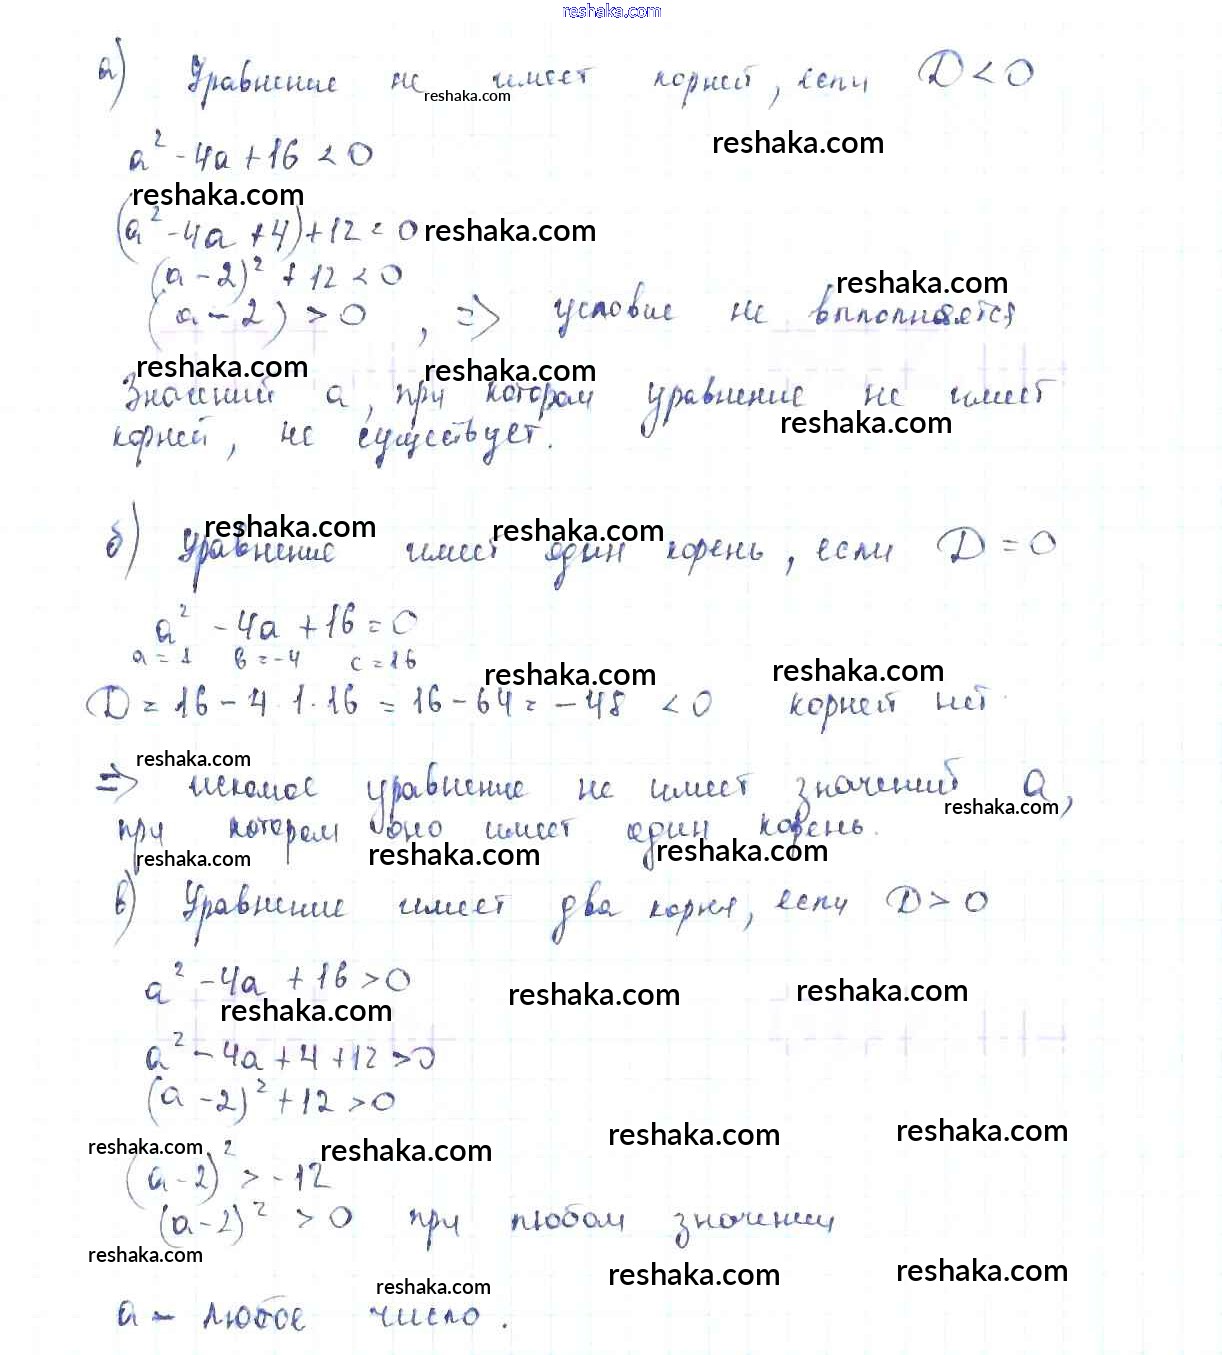 reshaka.com
а) Уравнение не имеет корней, если D < 0
reshaka.com
reshaka.com
a² - 4a + 16 < 0
reshaka.com
(a² - 4a + 4) + 12 < 0 reshaka.com
(a - 2)² + 12 < 0
reshaka.com
(a - 2) > 0, => условие не выполняется
reshaka.com reshaka.com
Значений a, при котором уравнение не имеет
reshaka.com
корней, не существует.
reshaka.com reshaka.com
б) Уравнение имеет один корень, если D = 0
a² - 4a + 16 = 0
a = 1 в = -4 c = 16
reshaka.com reshaka.com
D = 16 - 4·1·16 = 16 - 64 = -48 < 0 корней нет
reshaka.com
=> искомое уравнение не имеет значений a,
reshaka.com
при котором оно имеет один корень.
reshaka.com reshaka.com reshaka.com
в) Уравнение имеет два корня, если D > 0
a² - 4a + 16 > 0
reshaka.com reshaka.com reshaka.com
a² - 4a + 4 + 12 > 0
(a - 2)² + 12 > 0
reshaka.com reshaka.com reshaka.com reshaka.com
(a - 2)² > -12
(a - 2)² > 0 при любом значении
reshaka.com
reshaka.com reshaka.com reshaka.com
a - любое число.